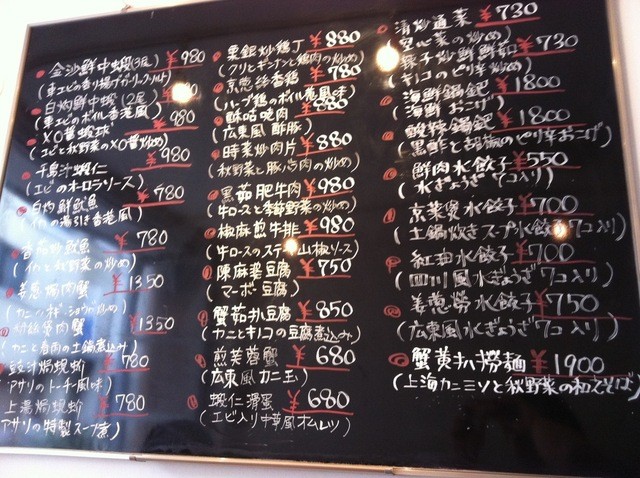 金沙鮮中蝦(3尾) ¥980
(車エビの香り揚げガーリックソルト)
白灼鮮中蝦(2尾)
(車エビのボイル香港風)
XO醤蝦球 ¥980
(エビと秋野菜のXO醤炒め)
千島汁蝦仁 ¥980
(エビのオーロラソース)
白灼鮮魷魚 ¥780
(イカの湯引き香港風)
香茄炒魷魚 ¥780
(イカと秋野菜の炒め)
姜葱焗肉蟹 ¥1350
¥1350
(カニと春雨の土鍋煮込み)
豉汁焗蜆蚧 ¥780
アサリのトーチ風味)
上湯焗蜆蚧 ¥780
アサリの特製スープ煮)
栗銀炒鶏丁 ¥880
(クリとギンナンと鶏肉の炒め)
京葱絲香鶏 ¥780
(ハーブ鶏のボイル葱風味)
醋咕咾肉 ¥880
(広東風酢豚)
時菜炒肉片 ¥880
(秋野菜と豚バラ肉の炒め)
黒茄肥牛肉 ¥980
(牛ロースと季節野菜の炒め)
椒麻煎牛排 ¥980
(牛ロースのステーキ山椒ソース)
陳麻婆豆腐 ¥750
(マーボー豆腐)
蟹茄扒豆腐 ¥850
(カニとキノコの豆腐煮込み)
煎芙蓉蟹 ¥680
(広東風カニ玉)
蝦仁滑蛋 ¥680
(エビ入り中華風オムレツ)
清炒通菜 ¥730
(空心菜の炒め)
辣子炒鮮鮮茄 ¥730
(キノコのピリ辛炒め)
海鮮鍋粑 ¥1800
(海鮮おこげ)
酸辣鍋粑 ¥1800
(黒酢と胡麻のピリ辛おこげ)
鮮肉水餃子 ¥550
(水ぎょうざ7コ入り)
京菜煲水餃子 ¥700
(土鍋炊きスープ水餃子7コ入り)
紅油水餃子 ¥700
(四川風水ぎょうざ7コ入り)
姜葱撈水餃子 ¥750
(広東風水ぎょうざ7コ入り)
蟹黄扒撈麺 ¥1900
(上海カニミソと秋野菜の和えそば)